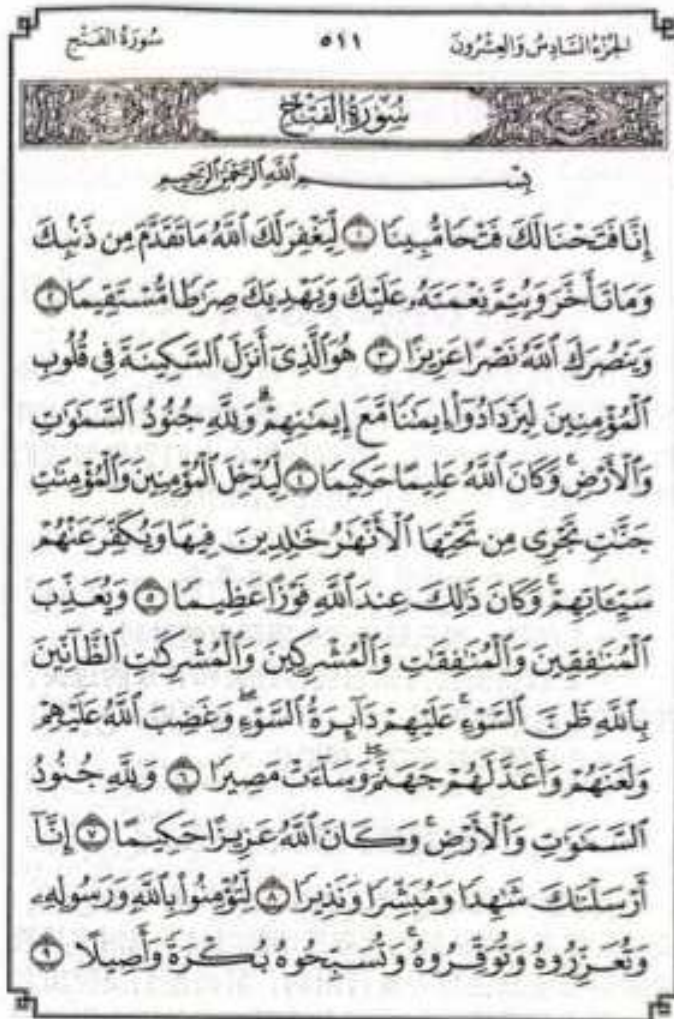 الجزء السادس والعشرون ٥١١ سورة الفتح
سُورَةُ الفَتْحِ
بِسْمِ اللَّهِ الرَّحْمَٰنِ الرَّحِيمِ
إِنَّا فَتَحْنَا لَكَ فَتْحًا مُّبِينًا ١ لِّيَغْفِرَ لَكَ ٱللَّهُ مَا تَقَدَّمَ مِن ذَنۢبِكَ
وَمَا تَأَخَّرَ وَيُتِمَّ نِعْمَتَهُۥ عَلَيْكَ وَيَهْدِيَكَ صِرَٰطًا مُّسْتَقِيمًا ٢
وَيَنصُرَكَ ٱللَّهُ نَصْرًا عَزِيزًا ٣ هُوَ ٱلَّذِىٓ أَنزَلَ ٱلسَّكِينَةَ فِى قُلُوبِ
ٱلْمُؤْمِنِينَ لِيَزْدَادُوٓا۟ إِيمَٰنًا مَّعَ إِيمَٰنِهِمْ ۗ وَلِلَّهِ جُنُودُ ٱلسَّمَٰوَٰتِ
وَٱلْأَرْضِ ۚ وَكَانَ ٱللَّهُ عَلِيمًا حَكِيمًا ٤ لِّيُدْخِلَ ٱلْمُؤْمِنِينَ وَٱلْمُؤْمِنَٰتِ
جَنَّٰتٍ تَجْرِى مِن تَحْتِهَا ٱلْأَنْهَٰرُ خَٰلِدِينَ فِيهَا وَيُكَفِّرَ عَنْهُمْ
سَيِّـَٔاتِهِمْ ۚ وَكَانَ ذَٰلِكَ عِندَ ٱللَّهِ فَوْزًا عَظِيمًا ٥ وَيُعَذِّبَ
ٱلْمُنَٰفِقِينَ وَٱلْمُنَٰفِقَٰتِ وَٱلْمُشْرِكِينَ وَٱلْمُشْرِكَٰتِ ٱلظَّآنِّينَ
بِٱللَّهِ ظَنَّ ٱلسَّوْءِ ۚ عَلَيْهِمْ دَآئِرَةُ ٱلسَّوْءِ ۖ وَغَضِبَ ٱللَّهُ عَلَيْهِمْ
وَلَعَنَهُمْ وَأَعَدَّ لَهُمْ جَهَنَّمَ ۖ وَسَآءَتْ مَصِيرًا ٦ وَلِلَّهِ جُنُودُ
ٱلسَّمَٰوَٰتِ وَٱلْأَرْضِ ۚ وَكَانَ ٱللَّهُ عَزِيزًا حَكِيمًا ٧ إِنَّآ
أَرْسَلْنَٰكَ شَٰهِدًا وَمُبَشِّرًا وَنَذِيرًا ٨ لِّتُؤْمِنُوا۟ بِٱللَّهِ وَرَسُولِهِۦ
وَتُعَزِّرُوهُ وَتُوَقِّرُوهُ ۚ وَتُسَبِّحُوهُ بُكْرَةً وَأَصِيلًا ٩